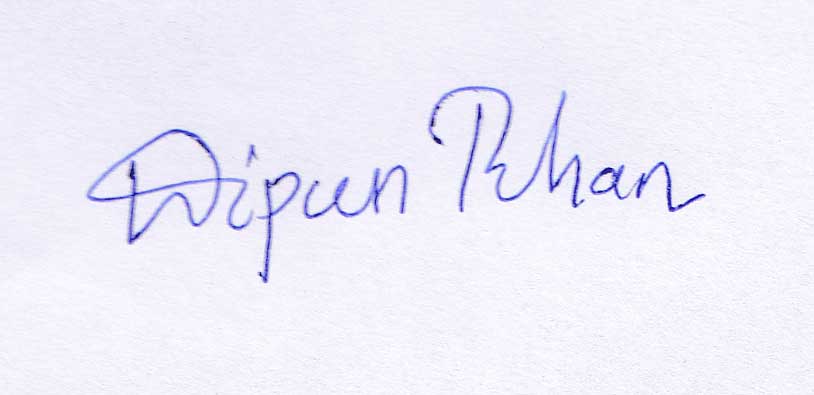 Dipun Rehan